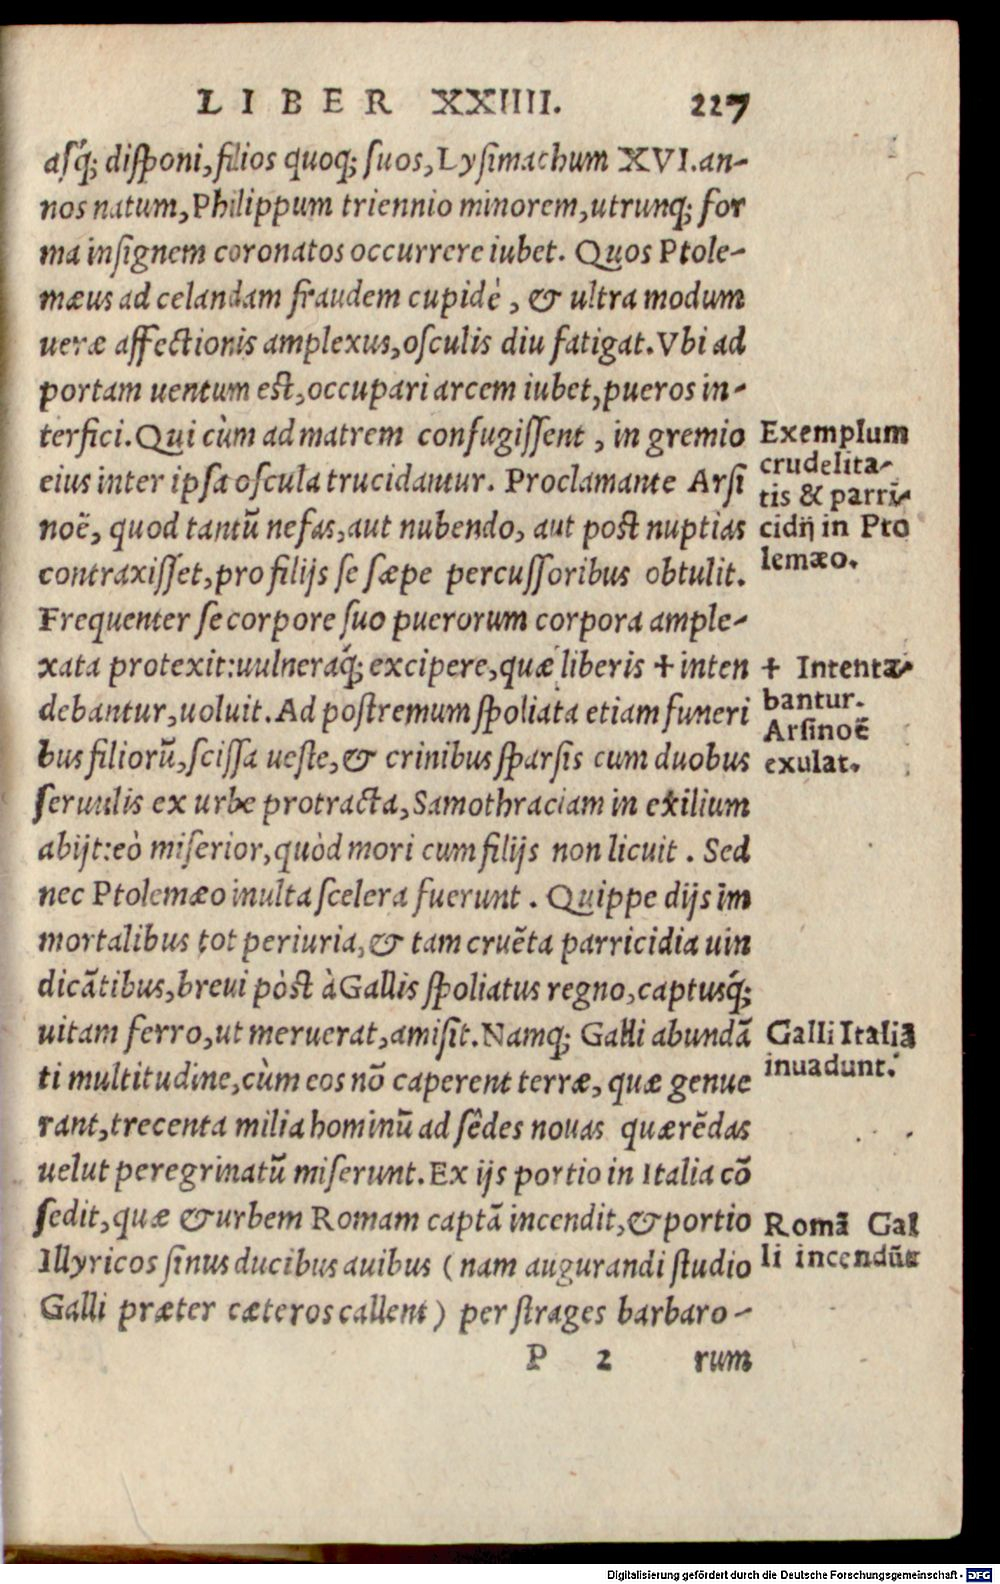 LIBER XXIIII. 227
asq́; disponi, filios quoq; suos, Lysimachum XVI. an-
nos natum, Philippum triennio minorem, utrunq; for
ma insignem coronatos occurrere iubet. Quos Ptole-
mæus ad celandam fraudem cupidè, & ultra modum
ueræ affectionis amplexus, osculis diu fatigat. Vbi ad
portam uentum est, occupari arcem iubet, pueros in-
terfici. Qui cùm ad matrem confugissent, in gremio
eius inter ipsa oscula trucidantur. Proclamante Arsi
noë, quod tantũ nefas, aut nubendo, aut post nuptias
contraxisset, pro filijs se sæpe percussoribus obtulit.
Frequenter se corpore suo puerorum corpora ample-
xata protexit: uulneraq́; excipere, quæ liberis + inten
debantur, uoluit. Ad postremum spoliata etiam funeri
bus filiorũ, scissa ueste, & crinibus sparsis cum duobus
seruulis ex urbe protracta, Samothraciam in exilium
abijt: eò miserior, quòd mori cum filijs non licuit. Sed
nec Ptolemæo inulta scelera fuerunt. Quippe dijs im
mortalibus tot periuria, & tam cruẽta parricidia uin
dicãtibus, breui pòst à Gallis spoliatus regno, captusq́;
uitam ferro, ut meruerat, amisit. Namq; Galli abundã
ti multitudine, cùm eos nõ caperent terræ, quæ genue
rant, trecenta milia hominũ ad sêdes nouas quærẽdas
uelut peregrinatũ miserunt. Ex ijs portio in Italia cõ
sedit, quæ & urbem Romam captã incendit, & portio
Illyricos sinus ducibus auibus (nam augurandi studio
Galli præter cæteros callent) per strages barbaro-
P 2 rum
Exemplum
crudelita-
tis & parri-
cidij in Pto
lemæo.
+ Intenta-
bantur.
Arsinoë
exulat.
Galli Italiã
inuadunt.
Romã Gal
li incendũt
Digitalisierung gefördert durch die Deutsche Forschungsgemeinschaft - DFG